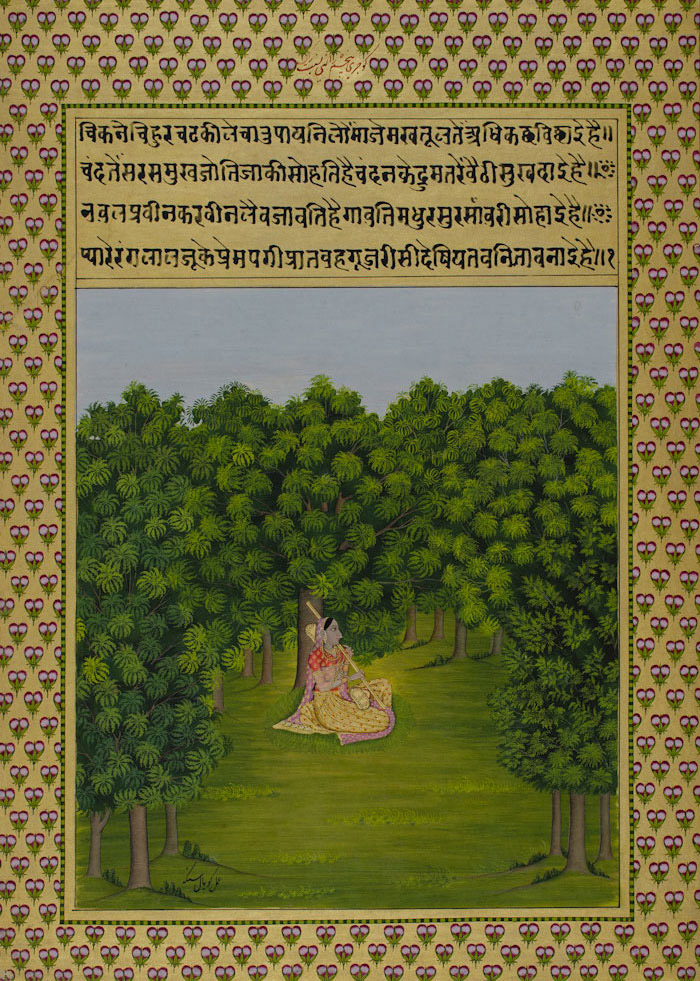 चिकने चिहुर चटकीले चारु पायनि लौं माजे मखतूल तें अधिक छवि छाई है॥
चंद तें सरस मुख जोति जाकी सोहति है चंदन के द्रुम तरें बैठी सुखदाई है॥
नवल प्रवीन कर बीन लै बजावति है गावति मधुर सुर सांवरी सोहाई है॥
प्यारे रंगलाल जू के प्रेम पगी प्रात वह गूजरी सी देषियत वनिता वनाई है॥१